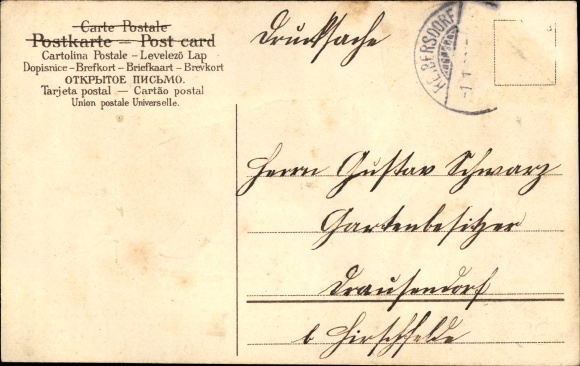 Carte Postale
Postkarte — Post card
Cartolina Postale – Levelező Lap
Dopisnice – Brefkort – Briefkaart – Brevkort
ОТКРЫТОЕ ПИСЬМО.
Tarjeta postal — Cartão postal
Union postale Universelle.
Drucksache
Herrn Gustav Schwarz
Gartenbesitzer
Drausendorf
b Hirschfelde